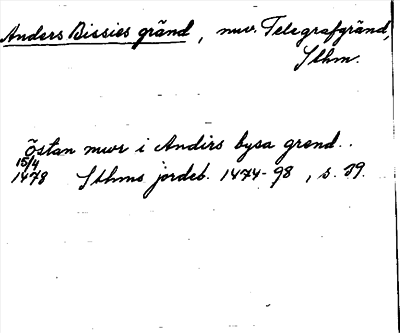 Anders Bissies gränd, nuv. Telegrafgränd,
Sthm.
Östan mwr i Andirs bysa grend.
15/4
1478 Sthms jordeb. 1474-98, s. 39.